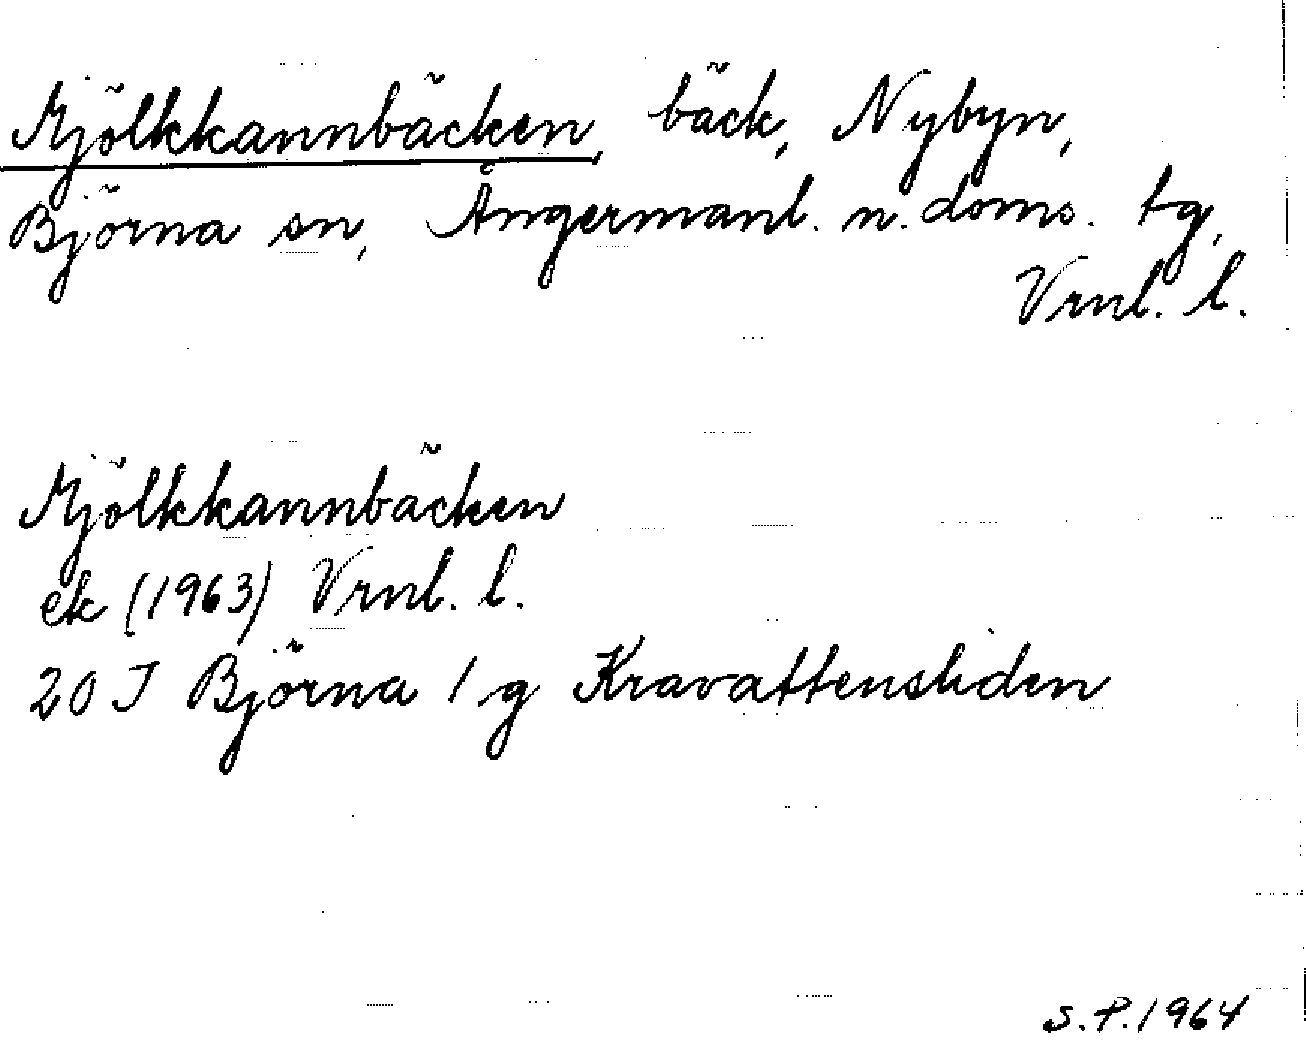 Mjölkkannbäcken, bäck, Nybyn,
Björna sn, Ångermanl. n. doms. tg,
Vrnl. l.
Mjölkkannbäcken
ek (1963) Vrnl. l.
20 J Björna 1 g Kravattensliden
S.P. 1964